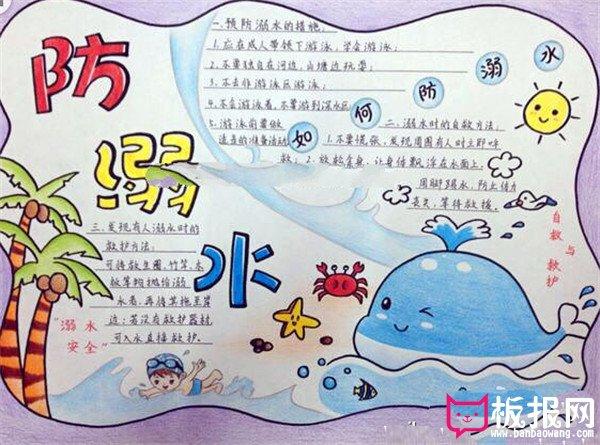 防
溺
水
一.预防溺水的措施:
1.应在成人带领下游泳,学会游泳;
2.不要独自在河边、山塘边玩耍;
3.不去非游泳区游泳;
4.不会游泳者,不要游到深水区
5.游泳前要做
适当的准备活动
如何防溺水
二.溺水时的自救方法:
1.不要慌张,发现周围有人时立即呼
救;2.放松全身,让身体飘浮在水面上,
用脚踢水,防止体力
丧失,等待救援。
三.发现有人溺水时的
救护方法:
可将救生圈、竹竿、木
板等物抛给溺
水者,再将其拖至岸
边;若没有救护器材,
可入水直接救护。
"溺水
安全"
自救与救护
板报网
www.banbaowang.com